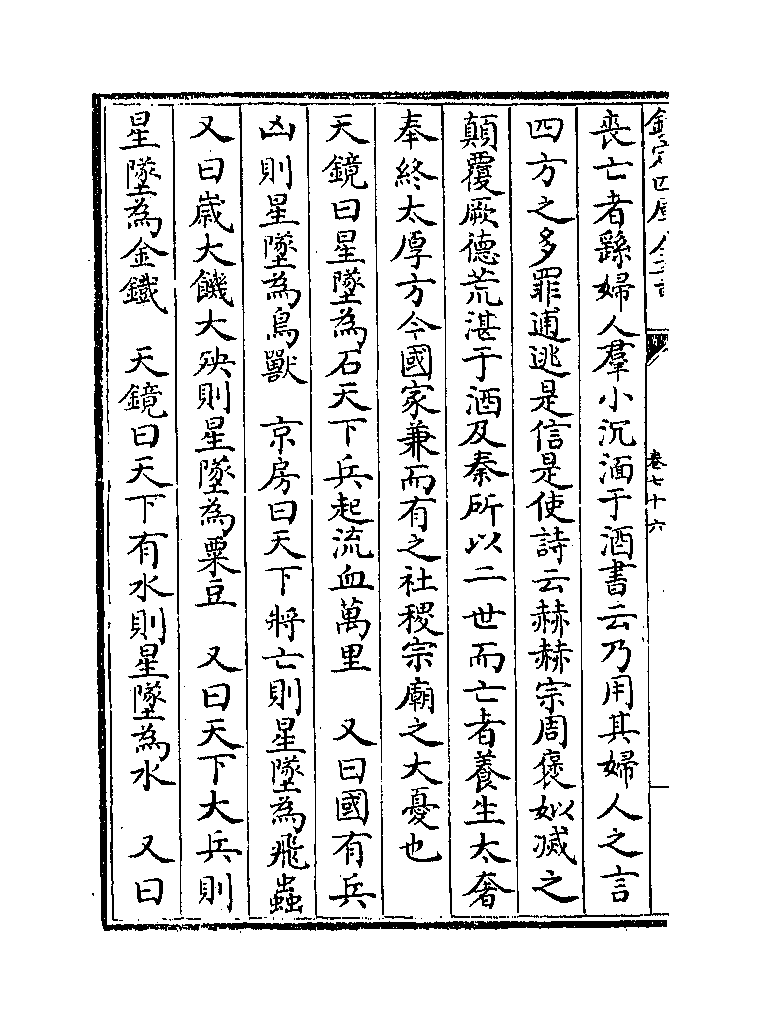 卷七十六
喪亡者繇婦人羣小沉湎于酒書云乃用其婦人之言
四方之多罪逋逃是信是使詩云赫赫宗周褒姒滅之
顛覆厥德荒湛于酒及秦所以二世而亡者養生太奢
奉終太厚方今國家兼而有之社稷宗廟之大憂也
天鏡曰星墜為石天下兵起流血萬里　又曰國有兵
凶則星墜為鳥獸　京房曰天下將亡則星墜為飛蟲
又曰歲大饑大殃則星墜為粟豆　又曰天下大兵則
星墜為金鐵　天鏡曰天下有水則星墜為水　又曰